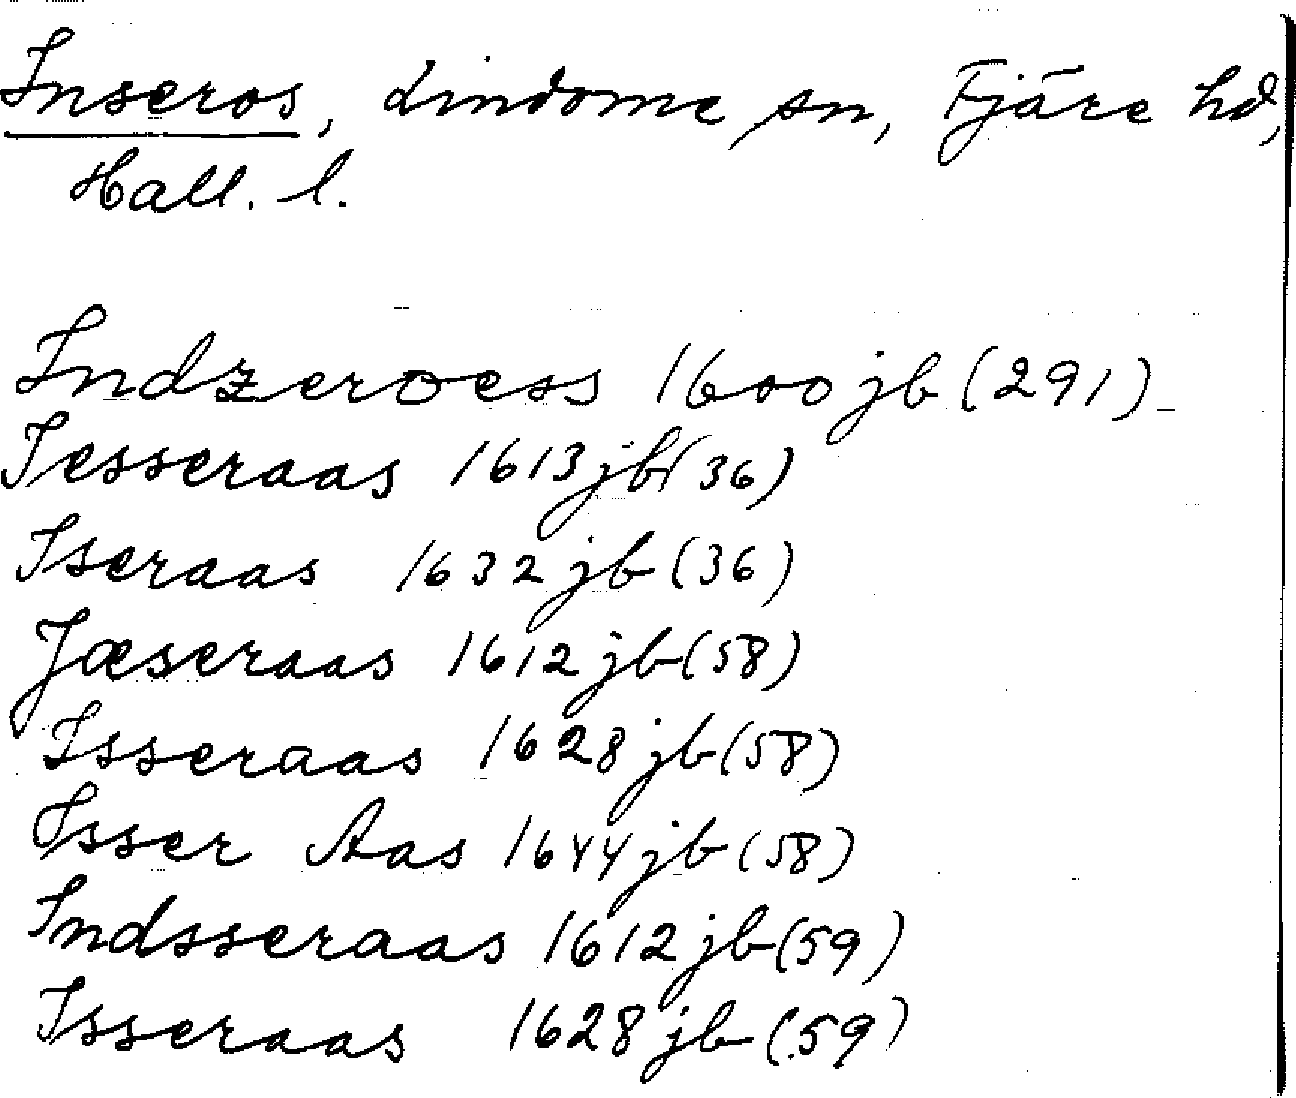 Inseros, Lindome sn, Fjäre hd,
Hall. l.
Indzeroess 1600 jb (291)
Iesseraas 1613 jb (36)
Iseraas 1632 jb (36)
Jæseraas 1612 jb (58)
Isseraas 1628 jb (58)
Isser Aas 1644 jb (58)
Indsseraas 1612 jb (59)
Isseraas 1628 jb (59)